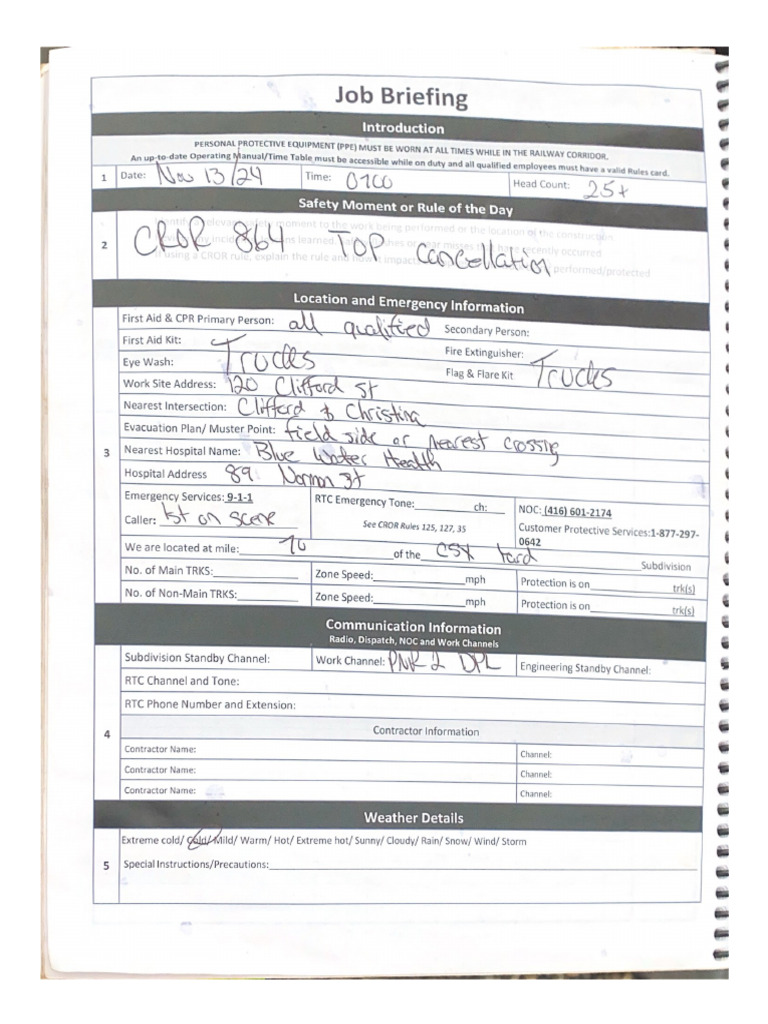 Job Briefing
Introduction
PERSONAL PROTECTIVE EQUIPMENT (PPE) MUST BE WORN AT ALL TIMES WHILE IN THE RAILWAY CORRIDOR.
An up-to-date Operating Manual/Time Table must be accessible while on duty and all qualified employees must have a valid Rules card.
1 Date: Nov 13/24 Time: 0700 Head Count: 25+
Safety Moment or Rule of the Day
2 CROR 864 TOP Cancellation
Location and Emergency Information
First Aid & CPR Primary Person: all qualified Secondary Person:
First Aid Kit: Trucks Fire Extinguisher: Trucks
Eye Wash: Flag & Flare Kit
Work Site Address: 120 Clifford St
Nearest Intersection: Clifford & Christina
Evacuation Plan/ Muster Point: field side or nearest crossing
3 Nearest Hospital Name: Blue Water Health
Hospital Address 89 Norman St
Emergency Services: 9-1-1 RTC Emergency Tone: ch: NOC: (416) 601-2174
Caller: 1st on scene See CROR Rules 125, 127, 35 Customer Protective Services:1-877-297-0642
We are located at mile: 70 of the CSX Yard Subdivision
No. of Main TRKS: Zone Speed: mph Protection is on trk(s)
No. of Non-Main TRKS: Zone Speed: mph Protection is on trk(s)
Communication Information
Radio, Dispatch, NOC and Work Channels
Subdivision Standby Channel: Work Channel: PNR 2 DPL Engineering Standby Channel:
RTC Channel and Tone:
RTC Phone Number and Extension:
4 Contractor Information
Contractor Name: Channel:
Contractor Name: Channel:
Contractor Name: Channel:
Weather Details
Extreme cold/ Cold/ Mild/ Warm/ Hot/ Extreme hot/ Sunny/ Cloudy/ Rain/ Snow/ Wind/ Storm
5 Special Instructions/Precautions: